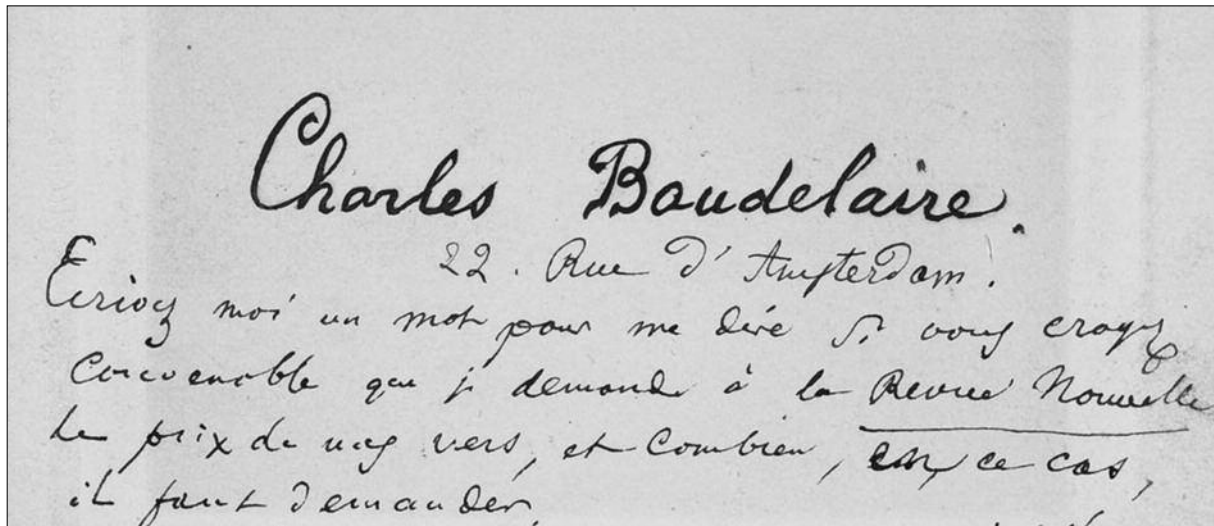 Charles Baudelaire.
22. Rue d'Amsterdam.
Ecrivez moi un mot pour me dire si vous croyez
convenable que je demande à la Revue Nouvelle
le prix de mes vers, et combien, en ce cas,
il faut demander.